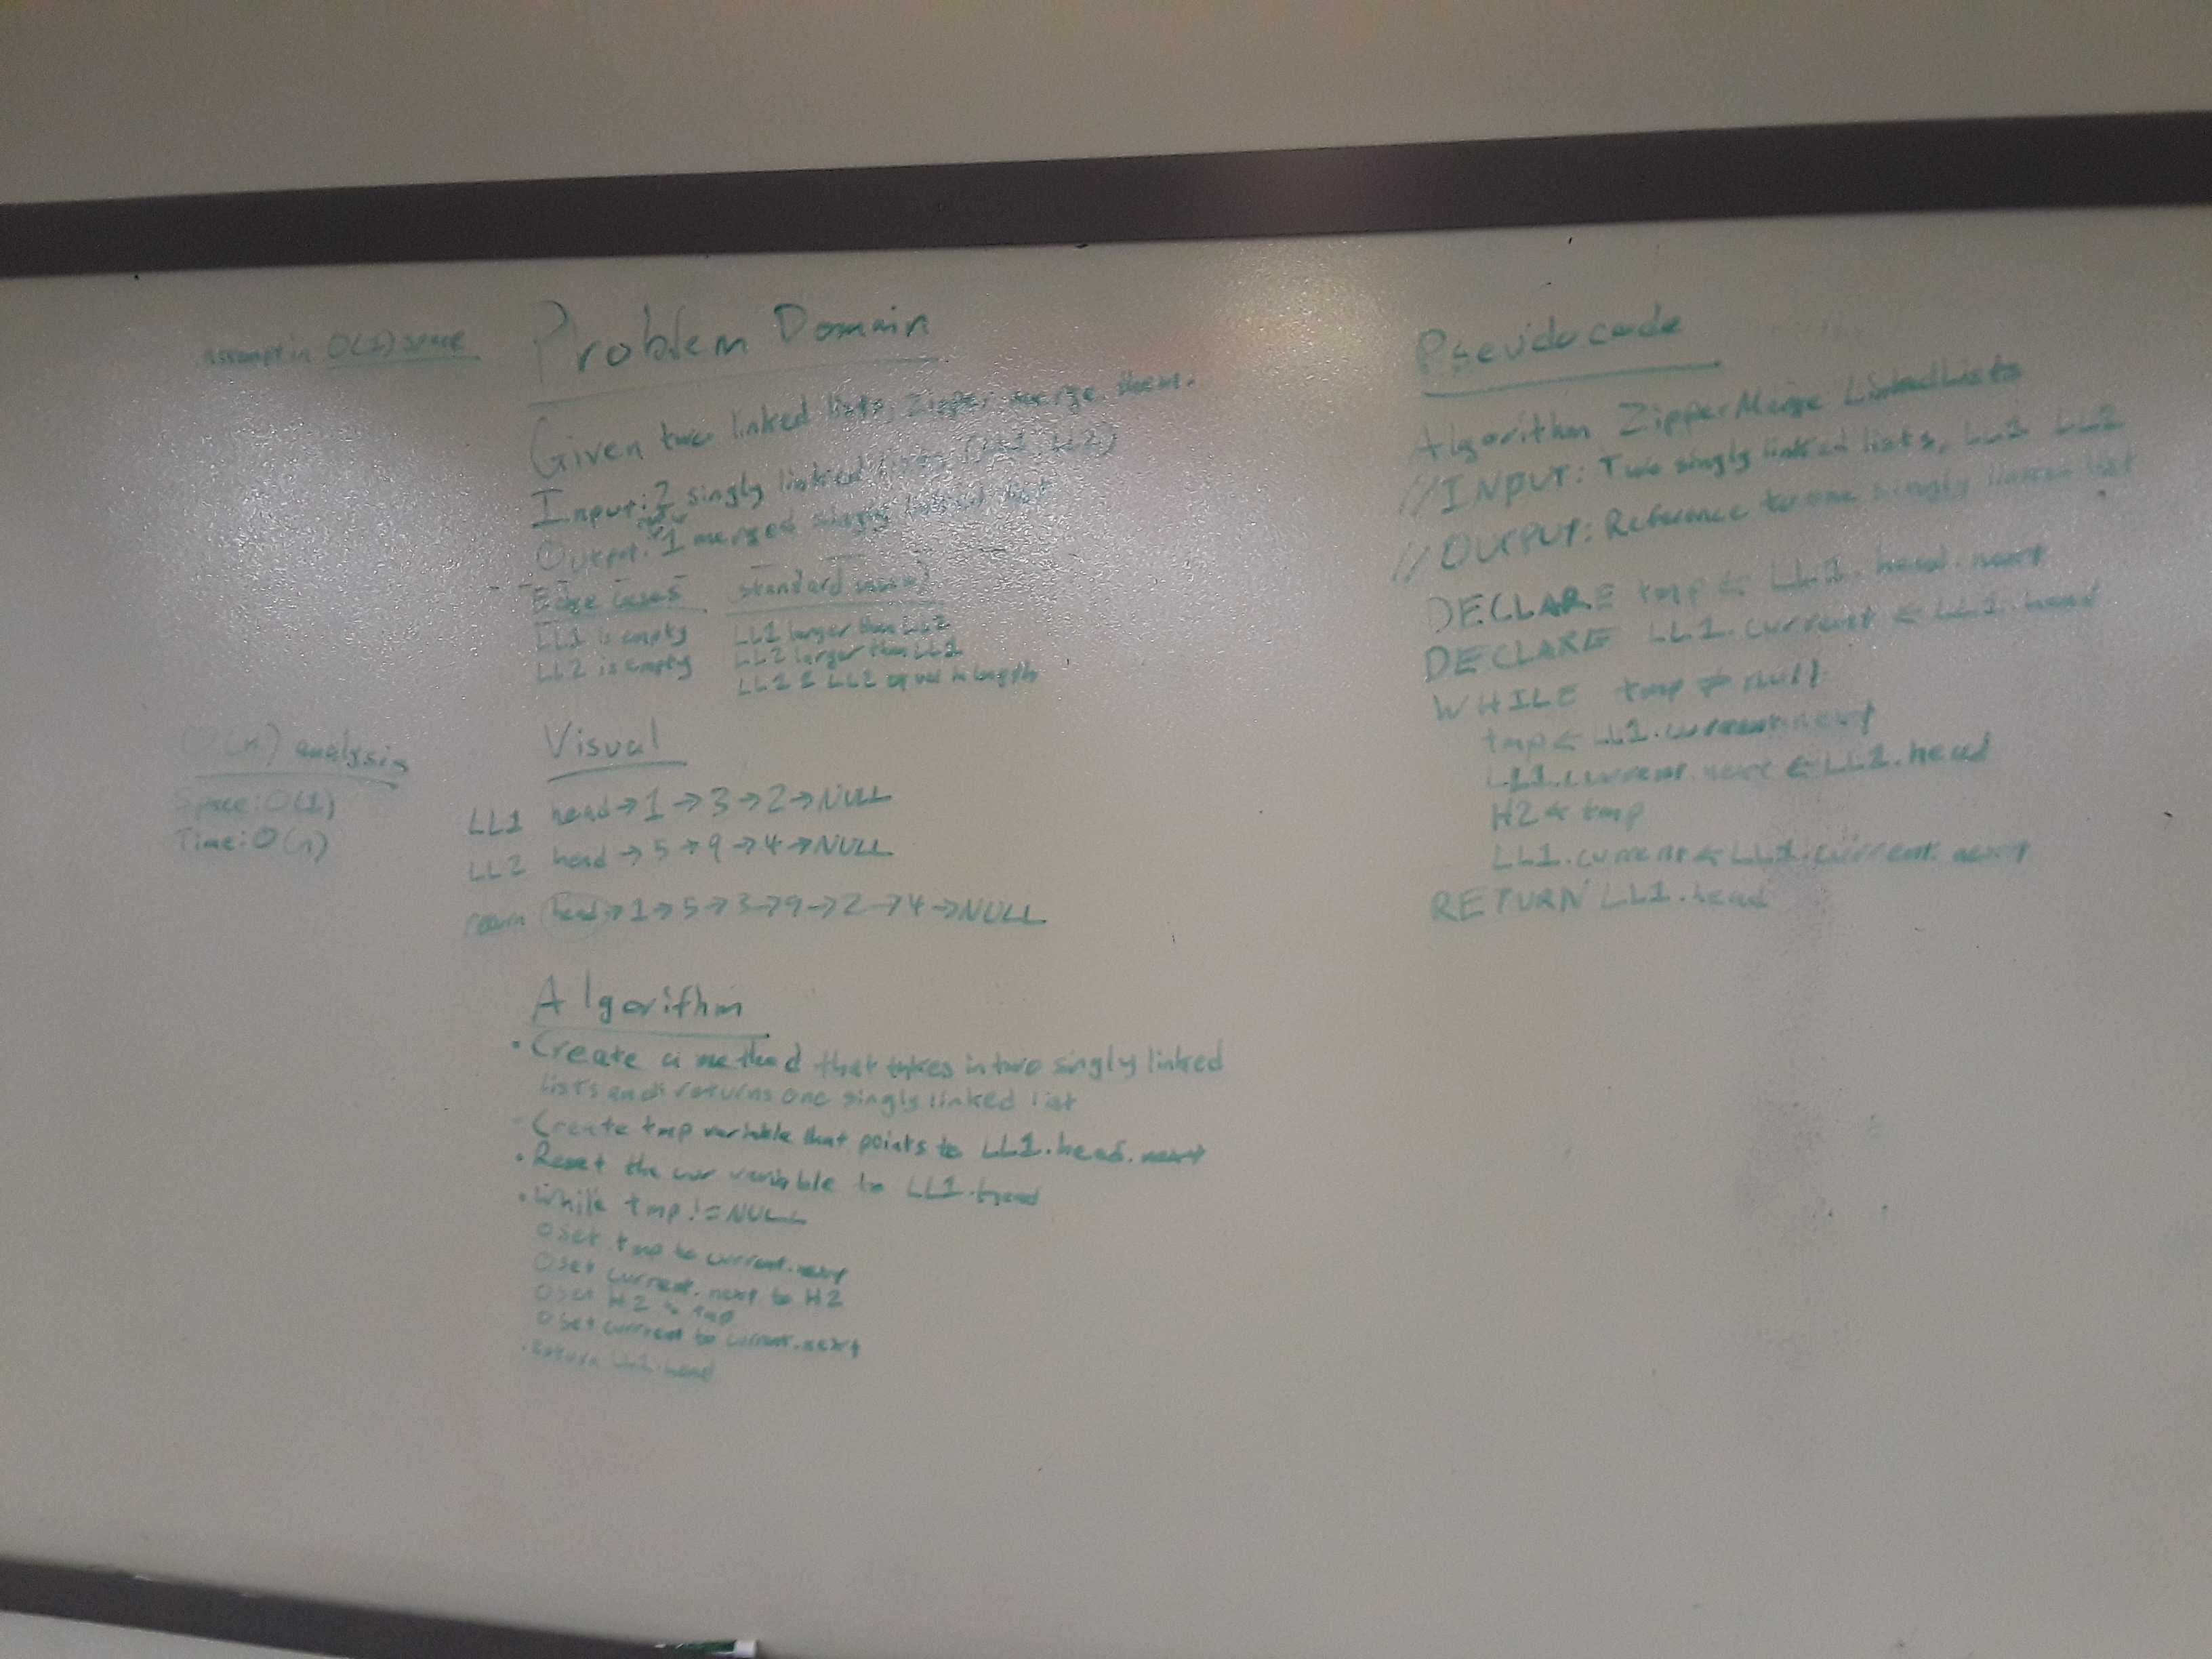 Attempt in O(1) space
Problem Domain
Given two linked lists, zipper merge them.
Input: 2 singly linked lists (LL1, LL2)
Output: 1 merged singly linked list
Edge Cases
LL1 is empty
LL2 is empty
standard
LL1 larger than LL2
LL2 larger than LL1
LL1 & LL2 equal in length
O(n) analysis
Space: O(1)
Time: O(n)
Visual
LL1 head → 1 → 3 → 2 → NULL
LL2 head → 5 → 9 → 4 → NULL
return head → 1 → 5 → 3 → 9 → 2 → 4 → NULL
Algorithm
• Create a method that takes in two singly linked
lists and returns one singly linked list
- Create tmp variable that points to LL1.head.next
• Reset the cur variable to LL1.head
• While tmp != NULL
○ set tmp to current.next
○ set current.next to H2
○ set H2 to tmp
○ set current to current.next
• return LL1.head
Pseudocode
Algorithm ZipperMerge LinkedLists
// INPUT: Two singly linked lists, LL1 LL2
// OUTPUT: Reference to one singly linked list
DECLARE tmp ← LL1.head.next
DECLARE LL1.current ← LL1.head
WHILE tmp ≠ null
tmp ← LL1.current.next
LL1.current.next ← LL2.head
H2 ← tmp
LL1.current ← LL1.current.next
RETURN LL1.head